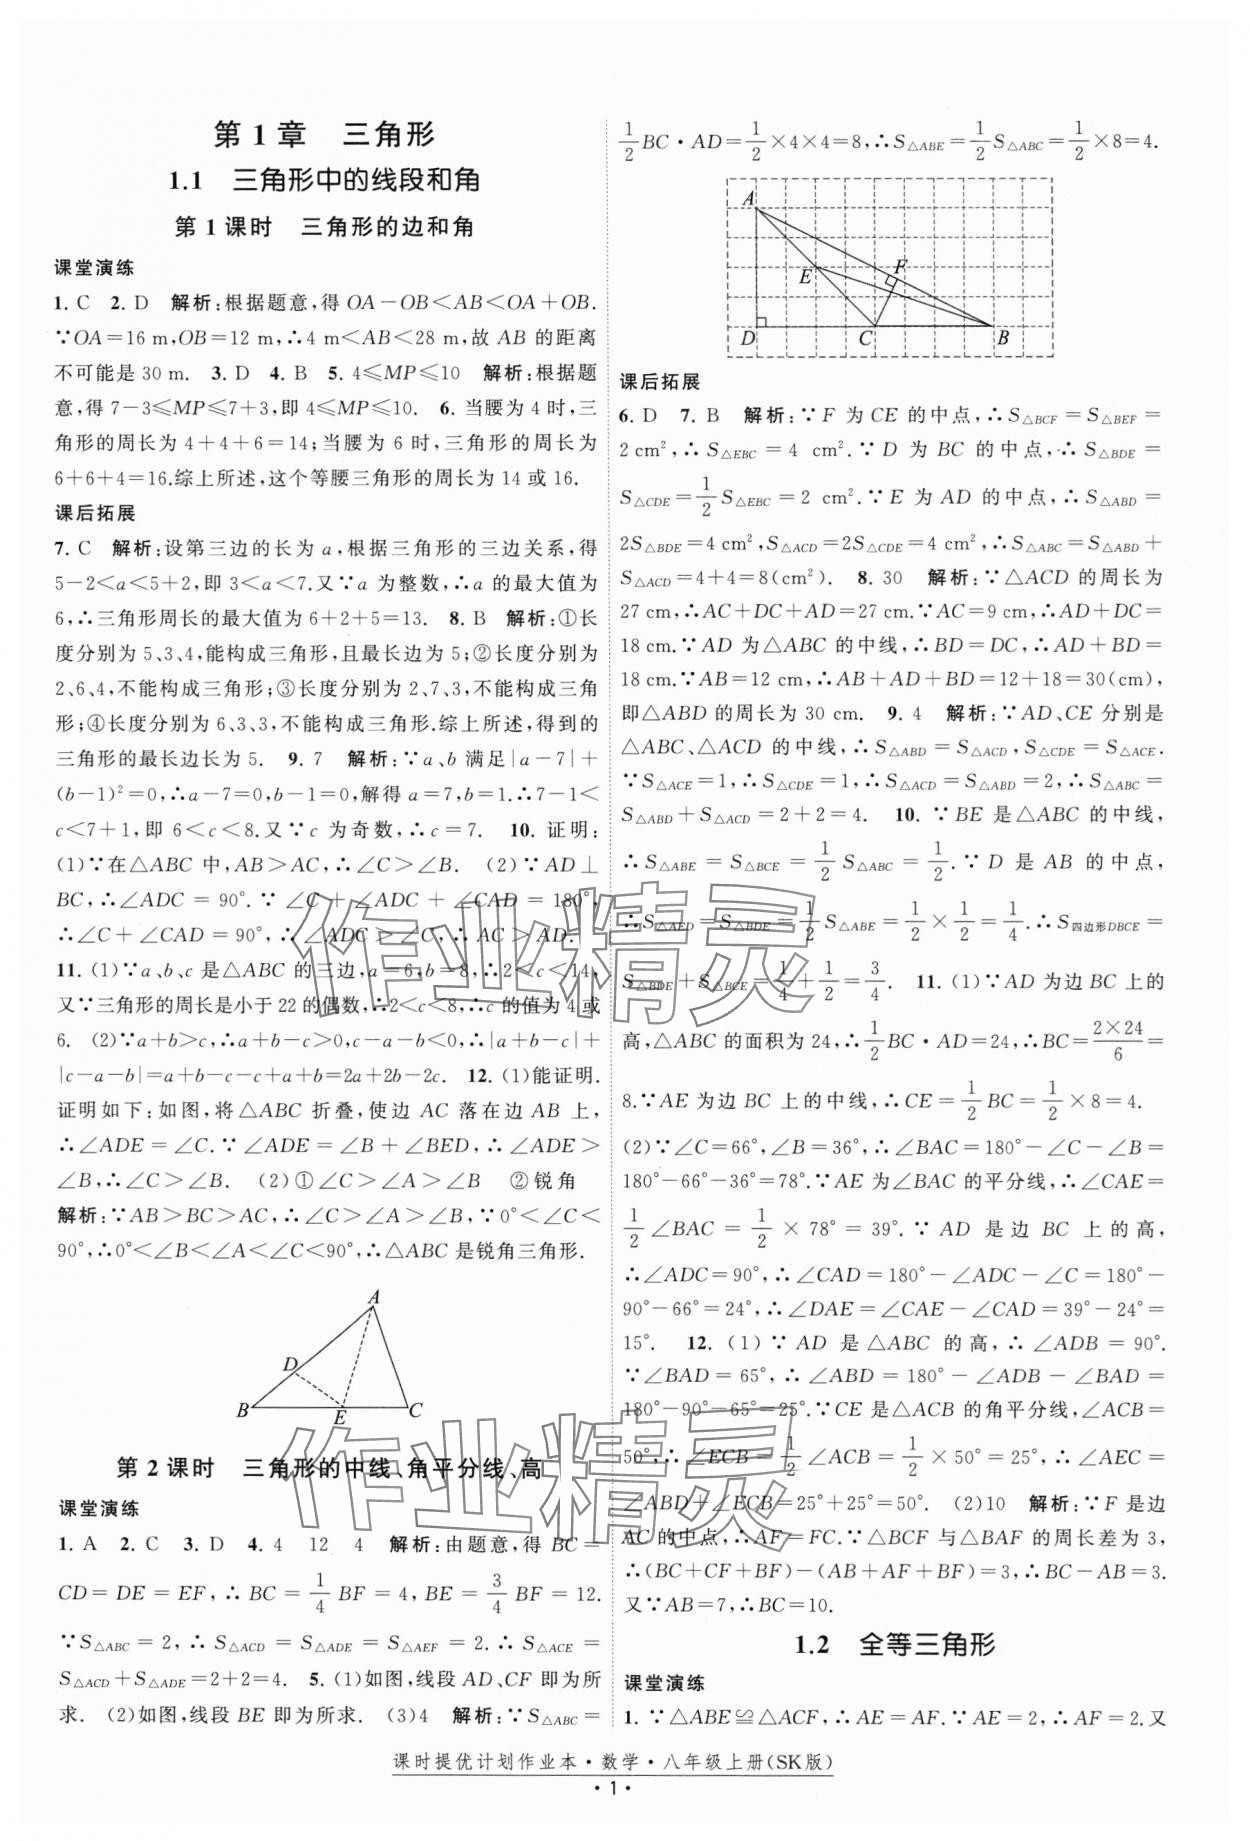 第1章　三角形
1.1　三角形中的线段和角
第1课时　三角形的边和角
课堂演练
1. C　2. D　解析:根据题意,得 OA－OB＜AB＜OA＋OB.
∵OA＝16 m,OB＝12 m,∴4 m＜AB＜28 m,故 AB 的距离
不可能是 30 m.　3. D　4. B　5. 4≤MP≤10　解析:根据题
意,得 7－3≤MP≤7＋3,即 4≤MP≤10.　6. 当腰为 4 时,三
角形的周长为 4＋4＋6＝14;当腰为 6 时,三角形的周长为
6＋6＋4＝16.综上所述,这个等腰三角形的周长为 14 或 16.
课后拓展
7. C　解析:设第三边的长为 a,根据三角形的三边关系,得
5－2＜a＜5＋2,即 3＜a＜7.又∵a 为整数,∴a 的最大值为
6,∴三角形周长的最大值为 6＋2＋5＝13.　8. B　解析:①长
度分别为 5、3、4,能构成三角形,且最长边为 5;②长度分别为
2、6、4,不能构成三角形;③长度分别为 2、7、3,不能构成三角
形;④长度分别为 6、3、3,不能构成三角形.综上所述,得到的
三角形的最长边长为 5.　9. 7　解析:∵a、b 满足|a－7|＋
(b－1)²＝0,∴a－7＝0,b－1＝0,解得 a＝7,b＝1.∴7－1＜
c＜7＋1,即 6＜c＜8.又∵c 为奇数,∴c＝7.　10. 证明:
(1)∵在△ABC 中,AB＞AC,∴∠C＞∠B.　(2)∵AD⊥
BC,∴∠ADC＝90°.∵∠C＋∠ADC＋∠CAD＝180°,
∴∠C＋∠CAD＝90°,∴∠ADC＞∠C,∴AC＞AD.
11. (1)∵a、b、c 是△ABC 的三边,a＝6,b＝8,∴2＜c＜14,
又∵三角形的周长是小于 22 的偶数,∴2＜c＜8,∴c 的值为 4 或
6.　(2)∵a＋b＞c,∴a＋b－c＞0,c－a－b＜0,∴|a＋b－c|＋
|c－a－b|＝a＋b－c－c＋a＋b＝2a＋2b－2c.　12. (1)能证明.
证明如下:如图,将△ABC 折叠,使边 AC 落在边 AB 上,
∴∠ADE＝∠C.∵∠ADE＝∠B＋∠BED,∴∠ADE＞
∠B,∴∠C＞∠B.　(2)①∠C＞∠A＞∠B　②锐角
解析:∵AB＞BC＞AC,∴∠C＞∠A＞∠B,∵0°＜∠C＜
90°,∴0°＜∠B＜∠A＜∠C＜90°,∴△ABC 是锐角三角形.
A
D
B　E　C
第2课时　三角形的中线、角平分线、高
课堂演练
1. A　2. C　3. D　4. 4　12　4　解析:由题意,得 BC＝
CD＝DE＝EF,∴BC＝1/4 BF＝4,BE＝3/4 BF＝12.
∵S△ABC＝2,∴S△ACD＝S△ADE＝S△AEF＝2,∴S△ACE＝
S△ACD＋S△ADE＝2＋2＝4.　5. (1)如图,线段 AD、CF 即为所
求.　(2)如图,线段 BE 即为所求.　(3)4　解析:∵S△ABC＝
1/2 BC·AD＝1/2×4×4＝8,∴S△ABE＝1/2 S△ABC＝1/2×8＝4.
A
E　F
D　C　B
课后拓展
6. D　7. B　解析:∵F 为 CE 的中点,∴S△BCF＝S△BEF＝
2 cm²,∴S△EBC＝4 cm².∵D 为 BC 的中点,∴S△BDE＝
S△CDE＝1/2 S△EBC＝2 cm².∵E 为 AD 的中点,∴S△ABD＝
2S△BDE＝4 cm²,S△ACD＝2S△CDE＝4 cm²,∴S△ABC＝S△ABD＋
S△ACD＝4＋4＝8(cm²).　8. 30　解析:∵△ACD 的周长为
27 cm,∴AC＋DC＋AD＝27 cm.∵AC＝9 cm,∴AD＋DC＝
18 cm.∵AD 为△ABC 的中线,∴BD＝DC,∴AD＋BD＝
18 cm.∵AB＝12 cm,∴AB＋AD＋BD＝12＋18＝30(cm),
即△ABD 的周长为 30 cm.　9. 4　解析:∵AD、CE 分别是
△ABC、△ACD 的中线,∴S△ABD＝S△ACD,S△CDE＝S△ACE.
∵S△ACE＝1,∴S△CDE＝1,∴S△ACD＝S△ABD＝2,∴S△ABC＝
S△ABD＋S△ACD＝2＋2＝4.　10. ∵BE 是△ABC 的中线,
∴S△ABE＝S△BCE＝1/2 S△ABC＝1/2.∵D 是 AB 的中点,
∴S△AED＝S△BDE＝1/2 S△ABE＝1/2×1/2＝1/4.∴S四边形DBCE＝
S△BDE＋S△BCE＝1/4＋1/2＝3/4.　11. (1)∵AD 为边 BC 上的
高,△ABC 的面积为 24,∴1/2 BC·AD＝24,∴BC＝2×24/6＝
8.∵AE 为边 BC 上的中线,∴CE＝1/2 BC＝1/2×8＝4.
(2)∵∠C＝66°,∠B＝36°,∴∠BAC＝180°－∠C－∠B＝
180°－66°－36°＝78°.∵AE 为∠BAC 的平分线,∴∠CAE＝
1/2∠BAC＝1/2×78°＝39°.∵AD 是边 BC 上的高,
∴∠ADC＝90°,∴∠CAD＝180°－∠ADC－∠C＝180°－
90°－66°＝24°,∴∠DAE＝∠CAE－∠CAD＝39°－24°＝
15°.　12. (1)∵AD 是△ABC 的高,∴∠ADB＝90°.
∵∠BAD＝65°,∴∠ABD＝180°－∠ADB－∠BAD＝
180°－90°－65°＝25°.∵CE 是△ACB 的角平分线,∠ACB＝
50°,∴∠ECB＝1/2∠ACB＝1/2×50°＝25°,∴∠AEC＝
∠ABD＋∠ECB＝25°＋25°＝50°.　(2)10　解析:∵F 是边
AC 的中点,∴AF＝FC.∵△BCF 与△BAF 的周长差为 3,
∴(BC＋CF＋BF)－(AB＋AF＋BF)＝3,∴BC－AB＝3.
又∵AB＝7,∴BC＝10.
1.2　全等三角形
课堂演练
1. ∵△ABE≌△ACF,∴AE＝AF.∵AE＝2,∴AF＝2.又
作业精灵
作业精灵
课时提优计划作业本·数学·八年级上册(SK版)
·1·